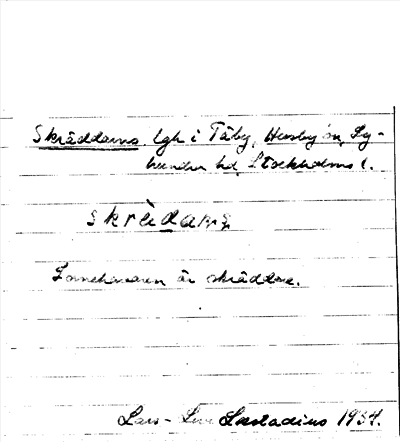 Skräddarns, lgh i Täby, Husby sn, Ly-
hundra hd, Stockholms l.
skrädarn̥s
Innehavaren är skräddare.
Lars-Ivar Laestadius 1934.